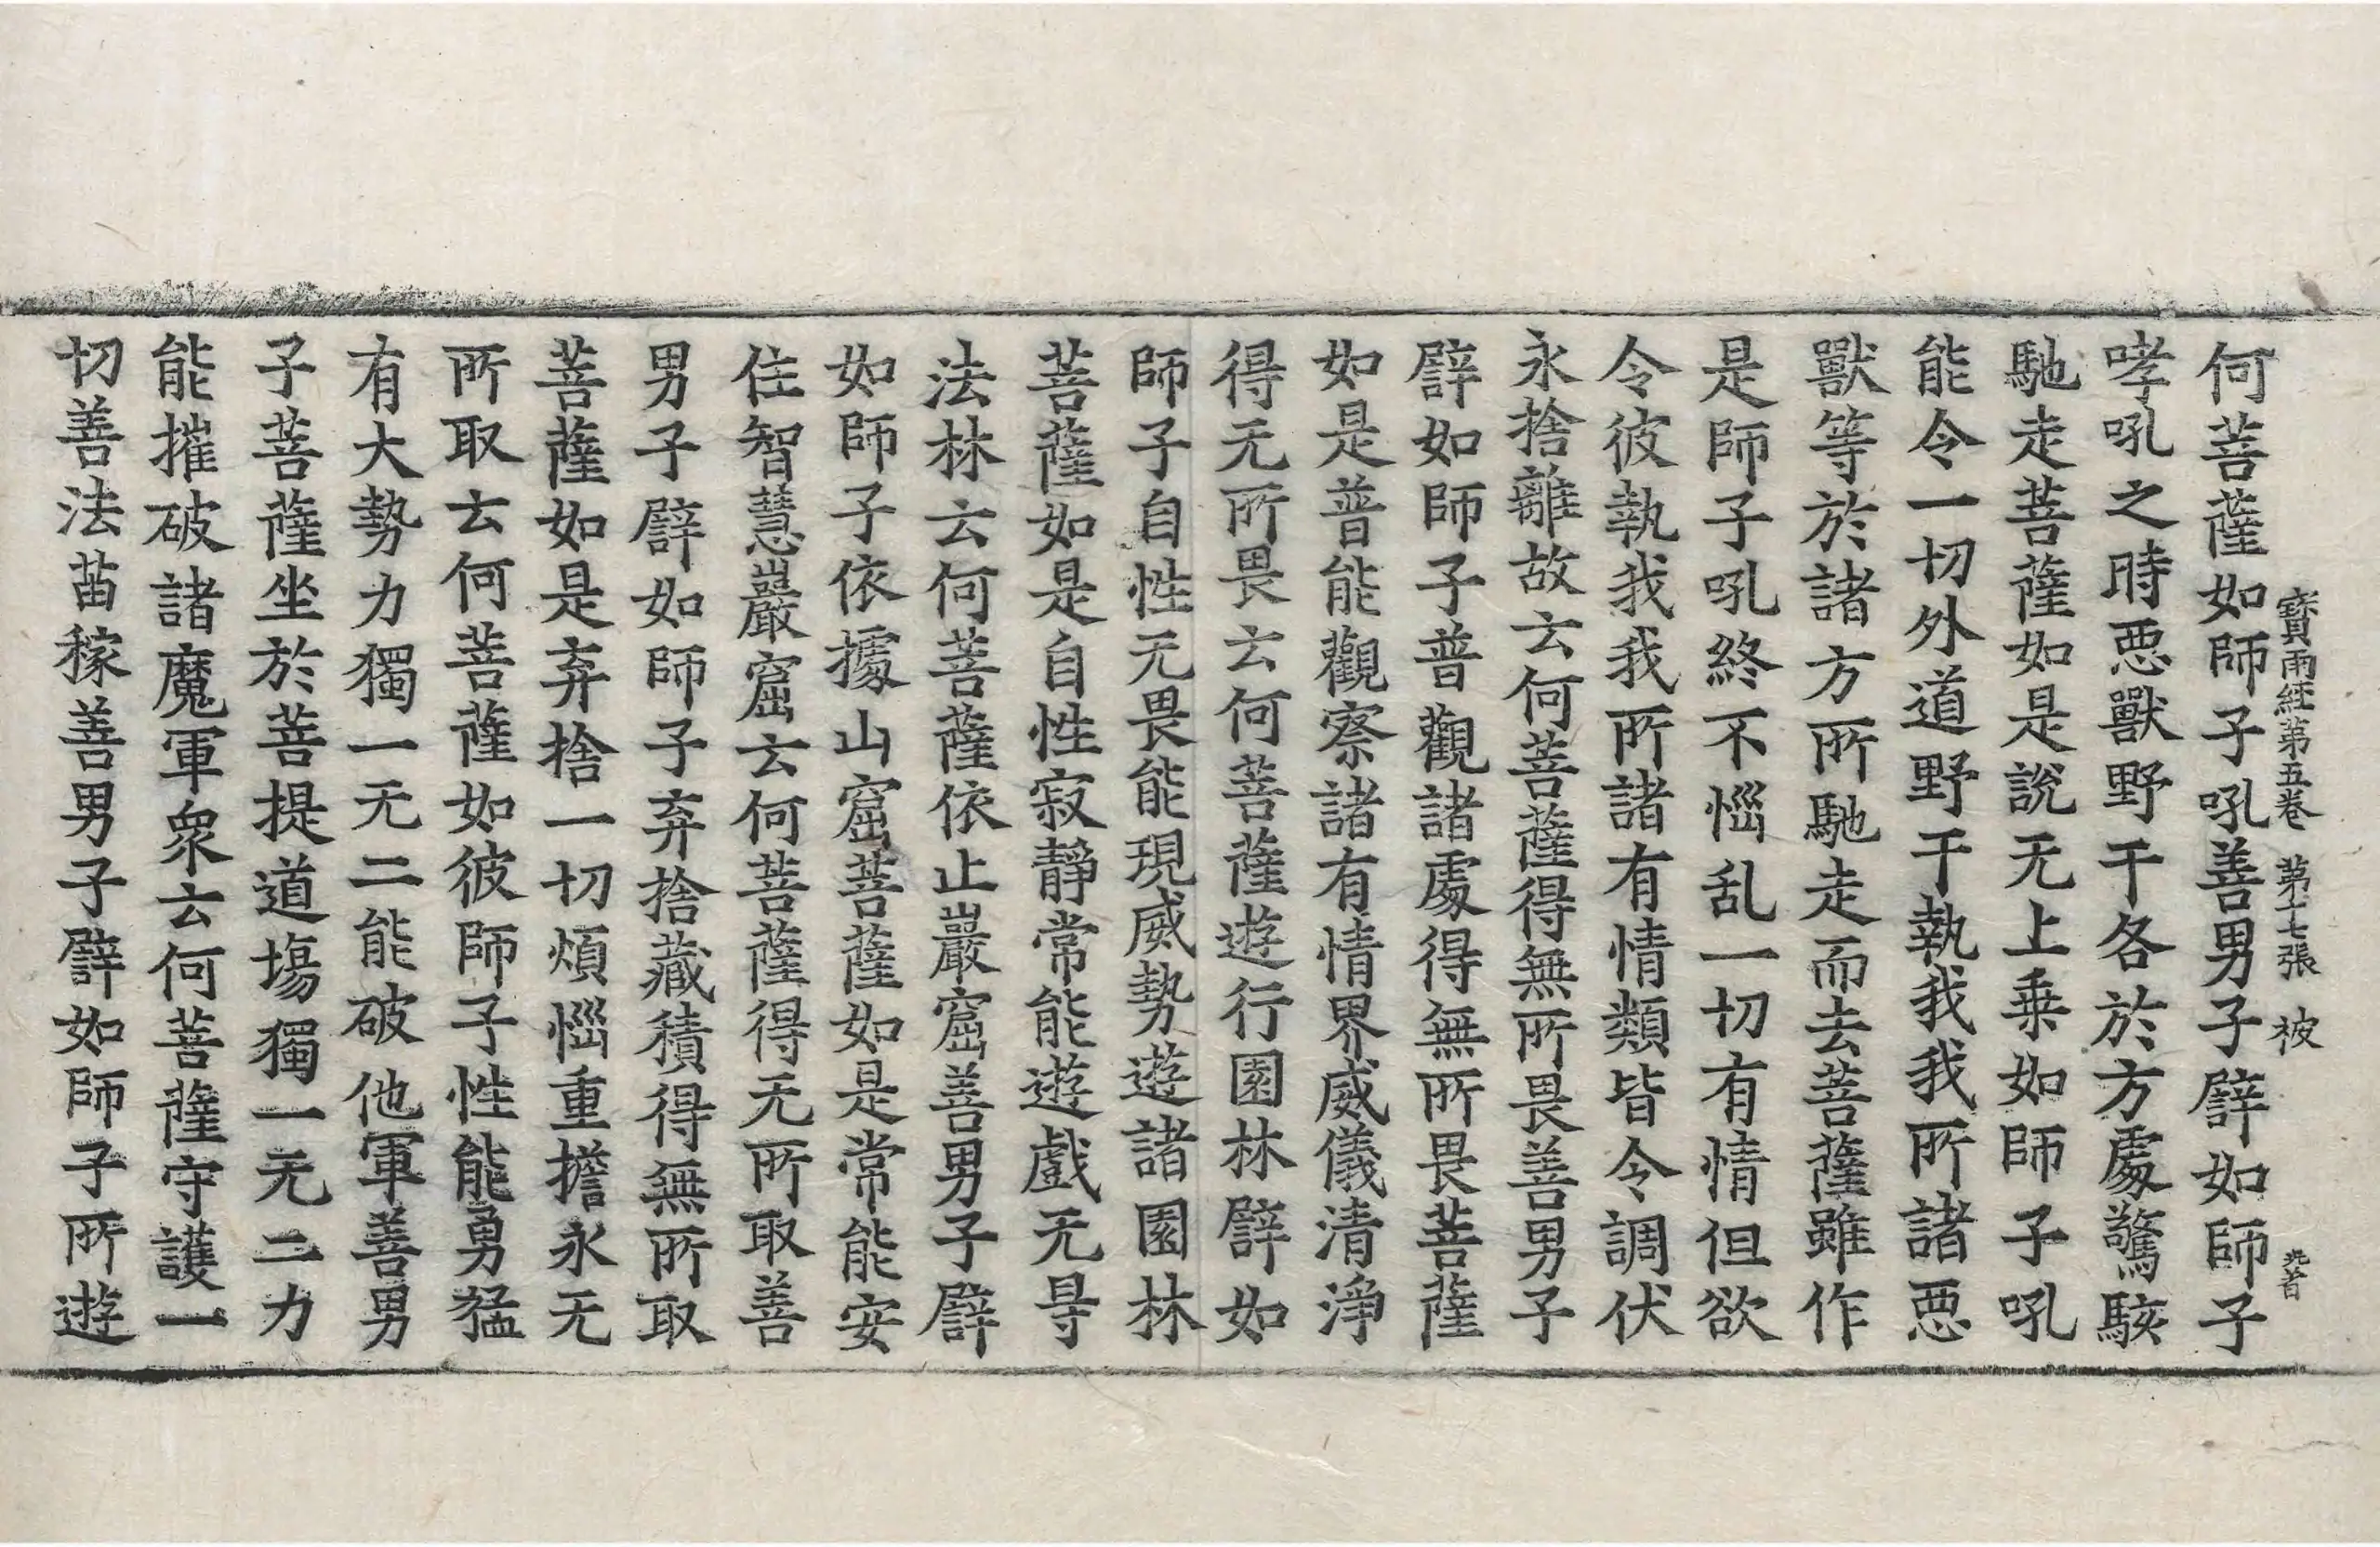 寶雨經第五卷 第十七張 被
何菩薩如師子吼善男子譬如師子
哮吼之時惡獸野干各於方處驚駭
馳走菩薩如是說无上乘如師子吼
能令一切外道野干執我我所諸惡
獸等於諸方所馳走而去菩薩雖作
是師子吼終不惱乱一切有情但欲
令彼執我我所諸有情類皆令調伏
永捨離故云何菩薩得無所畏善男子
譬如師子普觀諸處得無所畏菩薩
如是普能觀察諸有情界威儀清淨
得无所畏云何菩薩遊行園林譬如
師子自性无畏能現威勢遊諸園林
菩薩如是自性寂靜常能遊戲无㝵
法林云何菩薩依止巖窟善男子譬
如師子依據山窟菩薩如是常能安
住智慧巖窟云何菩薩得无所取善
男子譬如師子弃捨藏積得無所取
菩薩如是弃捨一切煩惱重擔永无
所取云何菩薩如彼師子性能勇猛
有大勢力獨一无二能破他軍善男
子菩薩坐於菩提道場獨一无二力
能摧破諸魔軍衆云何菩薩守護一
切善法苗稼善男子譬如師子所遊